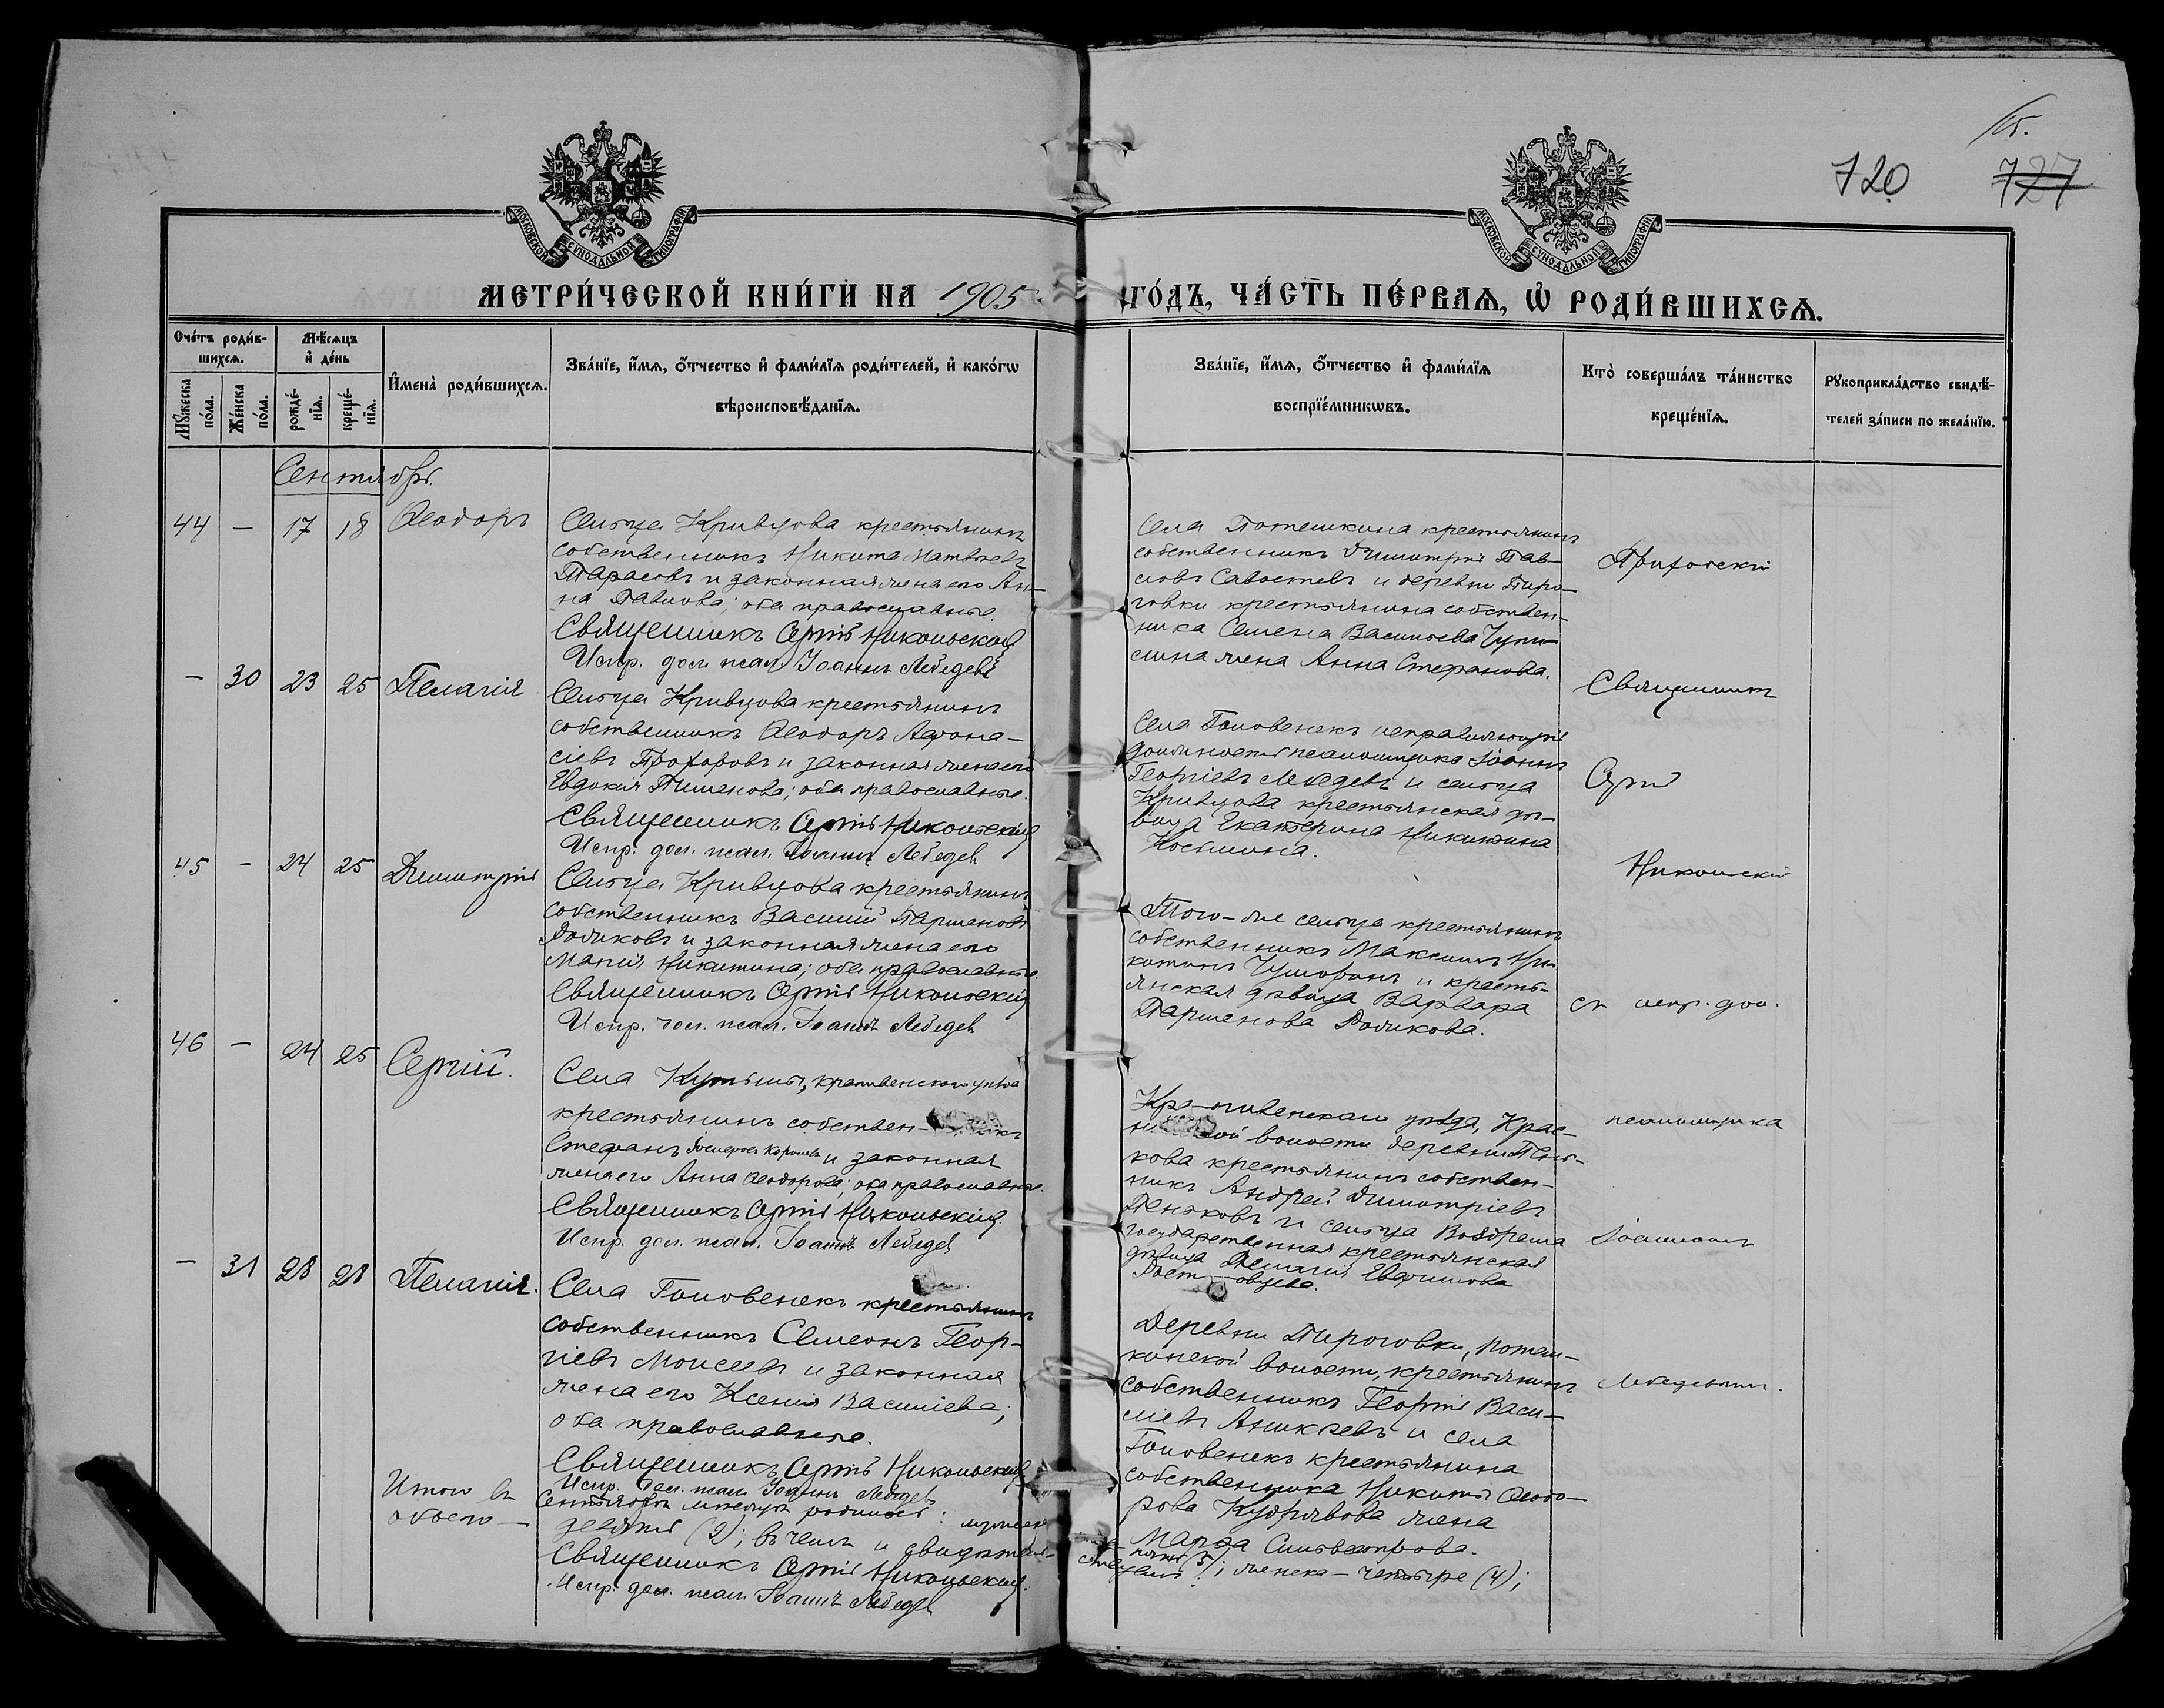 15.
720 727
МОСКОВСКОЙ СѴНОДАЛЬНОЙ ТИПОГРАФІИ
МОСКОВСКОЙ СѴНОДАЛЬНОЙ ТИПОГРАФІИ
МЕТРИ́ЧЕСКОЙ КНИ́ГИ НА 1905 ГО́ДЪ, ЧА́СТЬ ПЕ́РВАѦ, Ѡ҆ РОДИ́ВШИХСѦ.
Сче́тъ роди́в-
шихсѧ.
Мꙋ́жеска
по́ла.
Же́нска
по́ла.
Мѣ́сѧцъ
и҆ де́нь
рожде́-
нїѧ.
креще́-
нїѧ.
И҆мена̀ роди́вшихсѧ.
Зва́нїе, и҆́мѧ, ѻ҆́тчество и҆ фами́лїѧ роди́телей, и҆ како́гѡ
вѣроисповѣ́данїѧ.
Зва́нїе, и҆́мѧ, ѻ҆́тчество и҆ фами́лїѧ
воспрїе́мникѡвъ.
Кто̀ соверша́лъ та́инство
креще́нїѧ.
Рꙋкоприкла́дство свидѣ́-
телей за́писи по жела́нїю.
Сентябрь.
44 — 17 18 Ѳеодоръ
Сельца Кривцова крестьянинъ
собственникъ Никита Матвѣевъ
Тарасовъ и законная жена его Ан-
на Павлова; оба православные.
Священникъ Сергій Никольскій
Испр. дол. псал. Іоаннъ Лебедевъ
Села Потешкина крестьянинъ
собственникъ Димитрій Пав-
ловъ Савостевъ и деревни Пиро-
говки крестьянина собствен-
ника Семена Васильева
жена Анна Стефанова.
Приходскій
— 30 23 25 Пелагія
Сельца Кривцова крестьянинъ
собственникъ Ѳеодоръ Афона-
сіевъ Прохоровъ и законная жена его
Евдокія Пименова; оба православные.
Священникъ Сергій Никольскій
Испр. дол. псал. Іоаннъ Лебедевъ
Села Головенекъ исправляющій
должность псаломщика Іоаннъ
Георгіевъ Лебедевъ и сельца
Кривцова крестьянская дѣ-
вица Екатерина Никитина
Священникъ
Сергій
45 — 24 25 Димитрій
Сельца Кривцова крестьянинъ
собственникъ Василій Парменовъ
и законная жена его
Марія Никитина; оба православные.
Священникъ Сергій Никольскій
Испр. дол. псал. Іоаннъ Лебедевъ
Того-же сельца крестьянинъ
собственникъ Максимъ Ни-
китинъ и кресть-
янская дѣвица Варвара
Парменова
Никольскій
съ испр. дол.
46 — 24 25 Сергій.
Села Крапивенскаго уѣзда
крестьянинъ собствен-
Стефанъ и законная
жена его Анна Ѳеодорова; оба православные.
Священникъ Сергій Никольскій.
Испр. дол. псал. Іоаннъ Лебедевъ
Крапивенскаго уѣзда, Крас-
ной волости деревни Пень-
кова крестьянинъ собствен-
никъ Андрей Димитріевъ
Пеньковъ и сельца Воздрема
государственная крестьянская
дѣвица Пелагія Евфимова
псаломщика
Іоанномъ
— 31 28 28 Пелагія.
Села Головенекъ крестьянинъ
собственникъ Симеонъ Геор-
гіевъ Моисеевъ и законная
жена его Ксенія Василіева;
оба православные.
Священникъ Сергій Никольскій
Испр. дол. псал. Іоаннъ Лебедевъ
Деревни Пироговки, Потеш-
кинской волости, крестьянинъ
собственникъ Георгій Васи-
ліевъ Аникѣевъ и села
Головенекъ крестьянина
собственника Никиты Ѳеодо-
рова Кудрявова жена
Марѳа Сильвестрова.
Лебедевымъ.
Итого въ Сентябрѣ мѣсяцѣ родилось: мужска пять (5); женска — четыре (4);
обоего — девять (9); въ чемъ и свидѣтельствуемъ:
Священникъ Сергій Никольскій.
Испр. дол. псал. Іоаннъ Лебедевъ